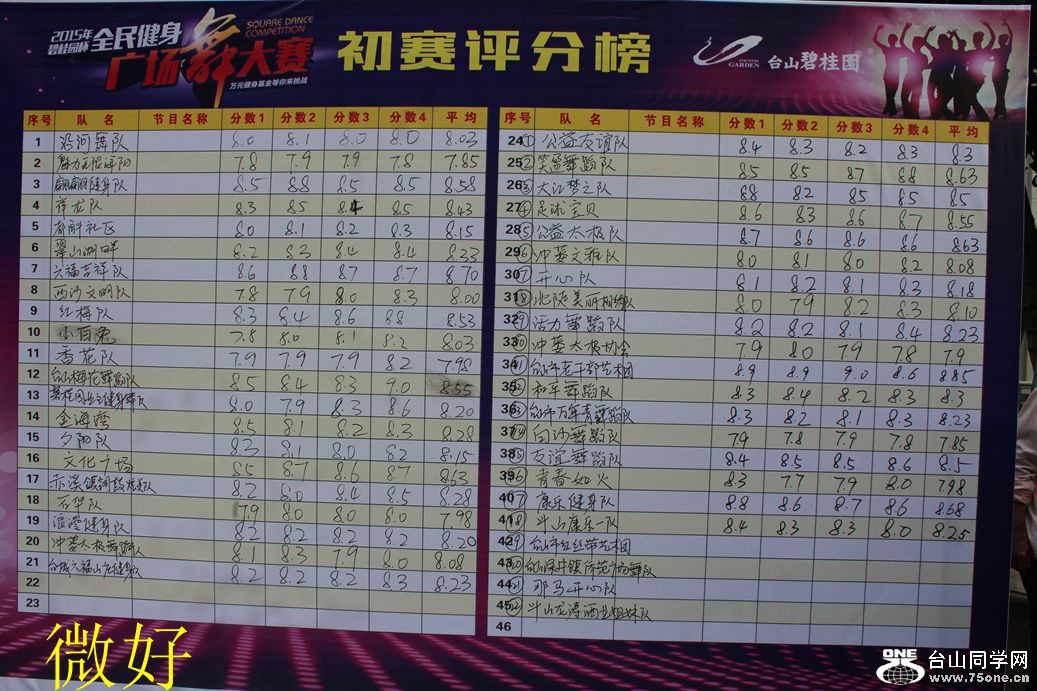 2015年
碧桂园杯 全民健身
SQUARE DANCE
COMPETITION
广场舞大赛
万元健身基金等你来挑战
初赛评分榜
COUNTRY
GARDEN
台山碧桂园
序号 队 名 节目名称 分数1 分数2 分数3 分数4 平均
1 沿河舞队 8.0 8.1 8.0 8.0 8.03
2 7.8 7.9 7.9 7.8 7.85
3 翩翩健身队 8.5 8.8 8.5 8.5 8.58
4 祥龙队 8.3 8.5 8.4 8.5 8.43
5 社区 8.0 8.1 8.2 8.3 8.15
6 翠山湖畔 8.2 8.3 8.4 8.4 8.33
7 六福吉祥队 8.6 8.8 8.7 8.7 8.70
8 西沙文明队 7.8 7.9 8.0 8.3 8.00
9 红梅队 8.3 8.4 8.6 8.8 8.53
10 小百兔 7.8 8.0 8.1 8.2 8.03
11 香花队 7.9 7.9 7.9 8.2 7.98
12 台山梅花舞蹈队 8.5 8.4 8.3 9.0 8.55
13 8.0 7.9 8.3 8.6 8.20
14 金海湾 8.5 8.1 8.2 8.3 8.28
15 夕阳队 8.3 8.1 8.0 8.2 8.15
16 文化广场 8.5 8.7 8.6 8.7 8.63
17 8.2 8.0 8.4 8.5 8.28
18 7.9 8.0 8.0 8.0 7.98
19 浪漫健身队 8.2 8.2 8.2 8.2 8.20
20 冲蒌太极舞蹈队 8.1 8.3 7.9 8.0 8.08
21 台城六福山庄健身队 8.2 8.2 8.2 8.3 8.23
22
23
序号 队 名 节目名称 分数1 分数2 分数3 分数4 平均
24 ① 公益友谊队 8.4 8.3 8.2 8.3 8.3
25 ② 笑盈舞蹈队 8.5 8.5 8.7 8.8 8.63
26 ③ 大江梦之队 8.8 8.2 8.5 8.5 8.5
27 ④ 足球宝贝 8.6 8.3 8.6 8.7 8.55
28 ⑤ 公益太极队 8.7 8.6 8.6 8.6 8.63
29 ⑥ 冲蒌文雅队 8.0 8.1 8.0 8.2 8.08
30 ⑦ 开心队 8.1 8.2 8.1 8.3 8.18
31 ⑧ 北陡美丽相约队 8.0 7.9 8.2 8.3 8.10
32 ⑨ 活力舞蹈队 8.2 8.2 8.1 8.4 8.23
33 ⑩ 冲蒌太极协会 7.9 8.0 7.9 7.8 7.9
34 ⑪ 台山市老干部艺术团 8.9 8.9 9.0 8.6 8.85
35 ⑫ 和平舞蹈队 8.3 8.4 8.2 8.3 8.3
36 ⑬ 台山市万年青舞蹈队 8.3 8.2 8.1 8.3 8.23
37 ⑭ 白沙舞蹈队 7.9 7.8 7.9 7.8 7.85
38 ⑮ 友谊舞蹈队 8.4 8.5 8.5 8.6 8.5
39 ⑯ 青春如火 8.3 7.7 7.9 8.0 7.98
40 ⑰ 康乐健身队 8.8 8.6 8.7 8.6 8.68
41 ⑱ 斗山康乐一队 8.4 8.3 8.3 8.0 8.25
42 ⑲ 台山市红丝带艺术团
43 ⑳ 台山深井镇 广场舞队
44 ㉑ 那马开心队
45 ㉒ 斗山龙涛酒业姐妹队
46
微好
ONE 台山同学网
www.75one.cn